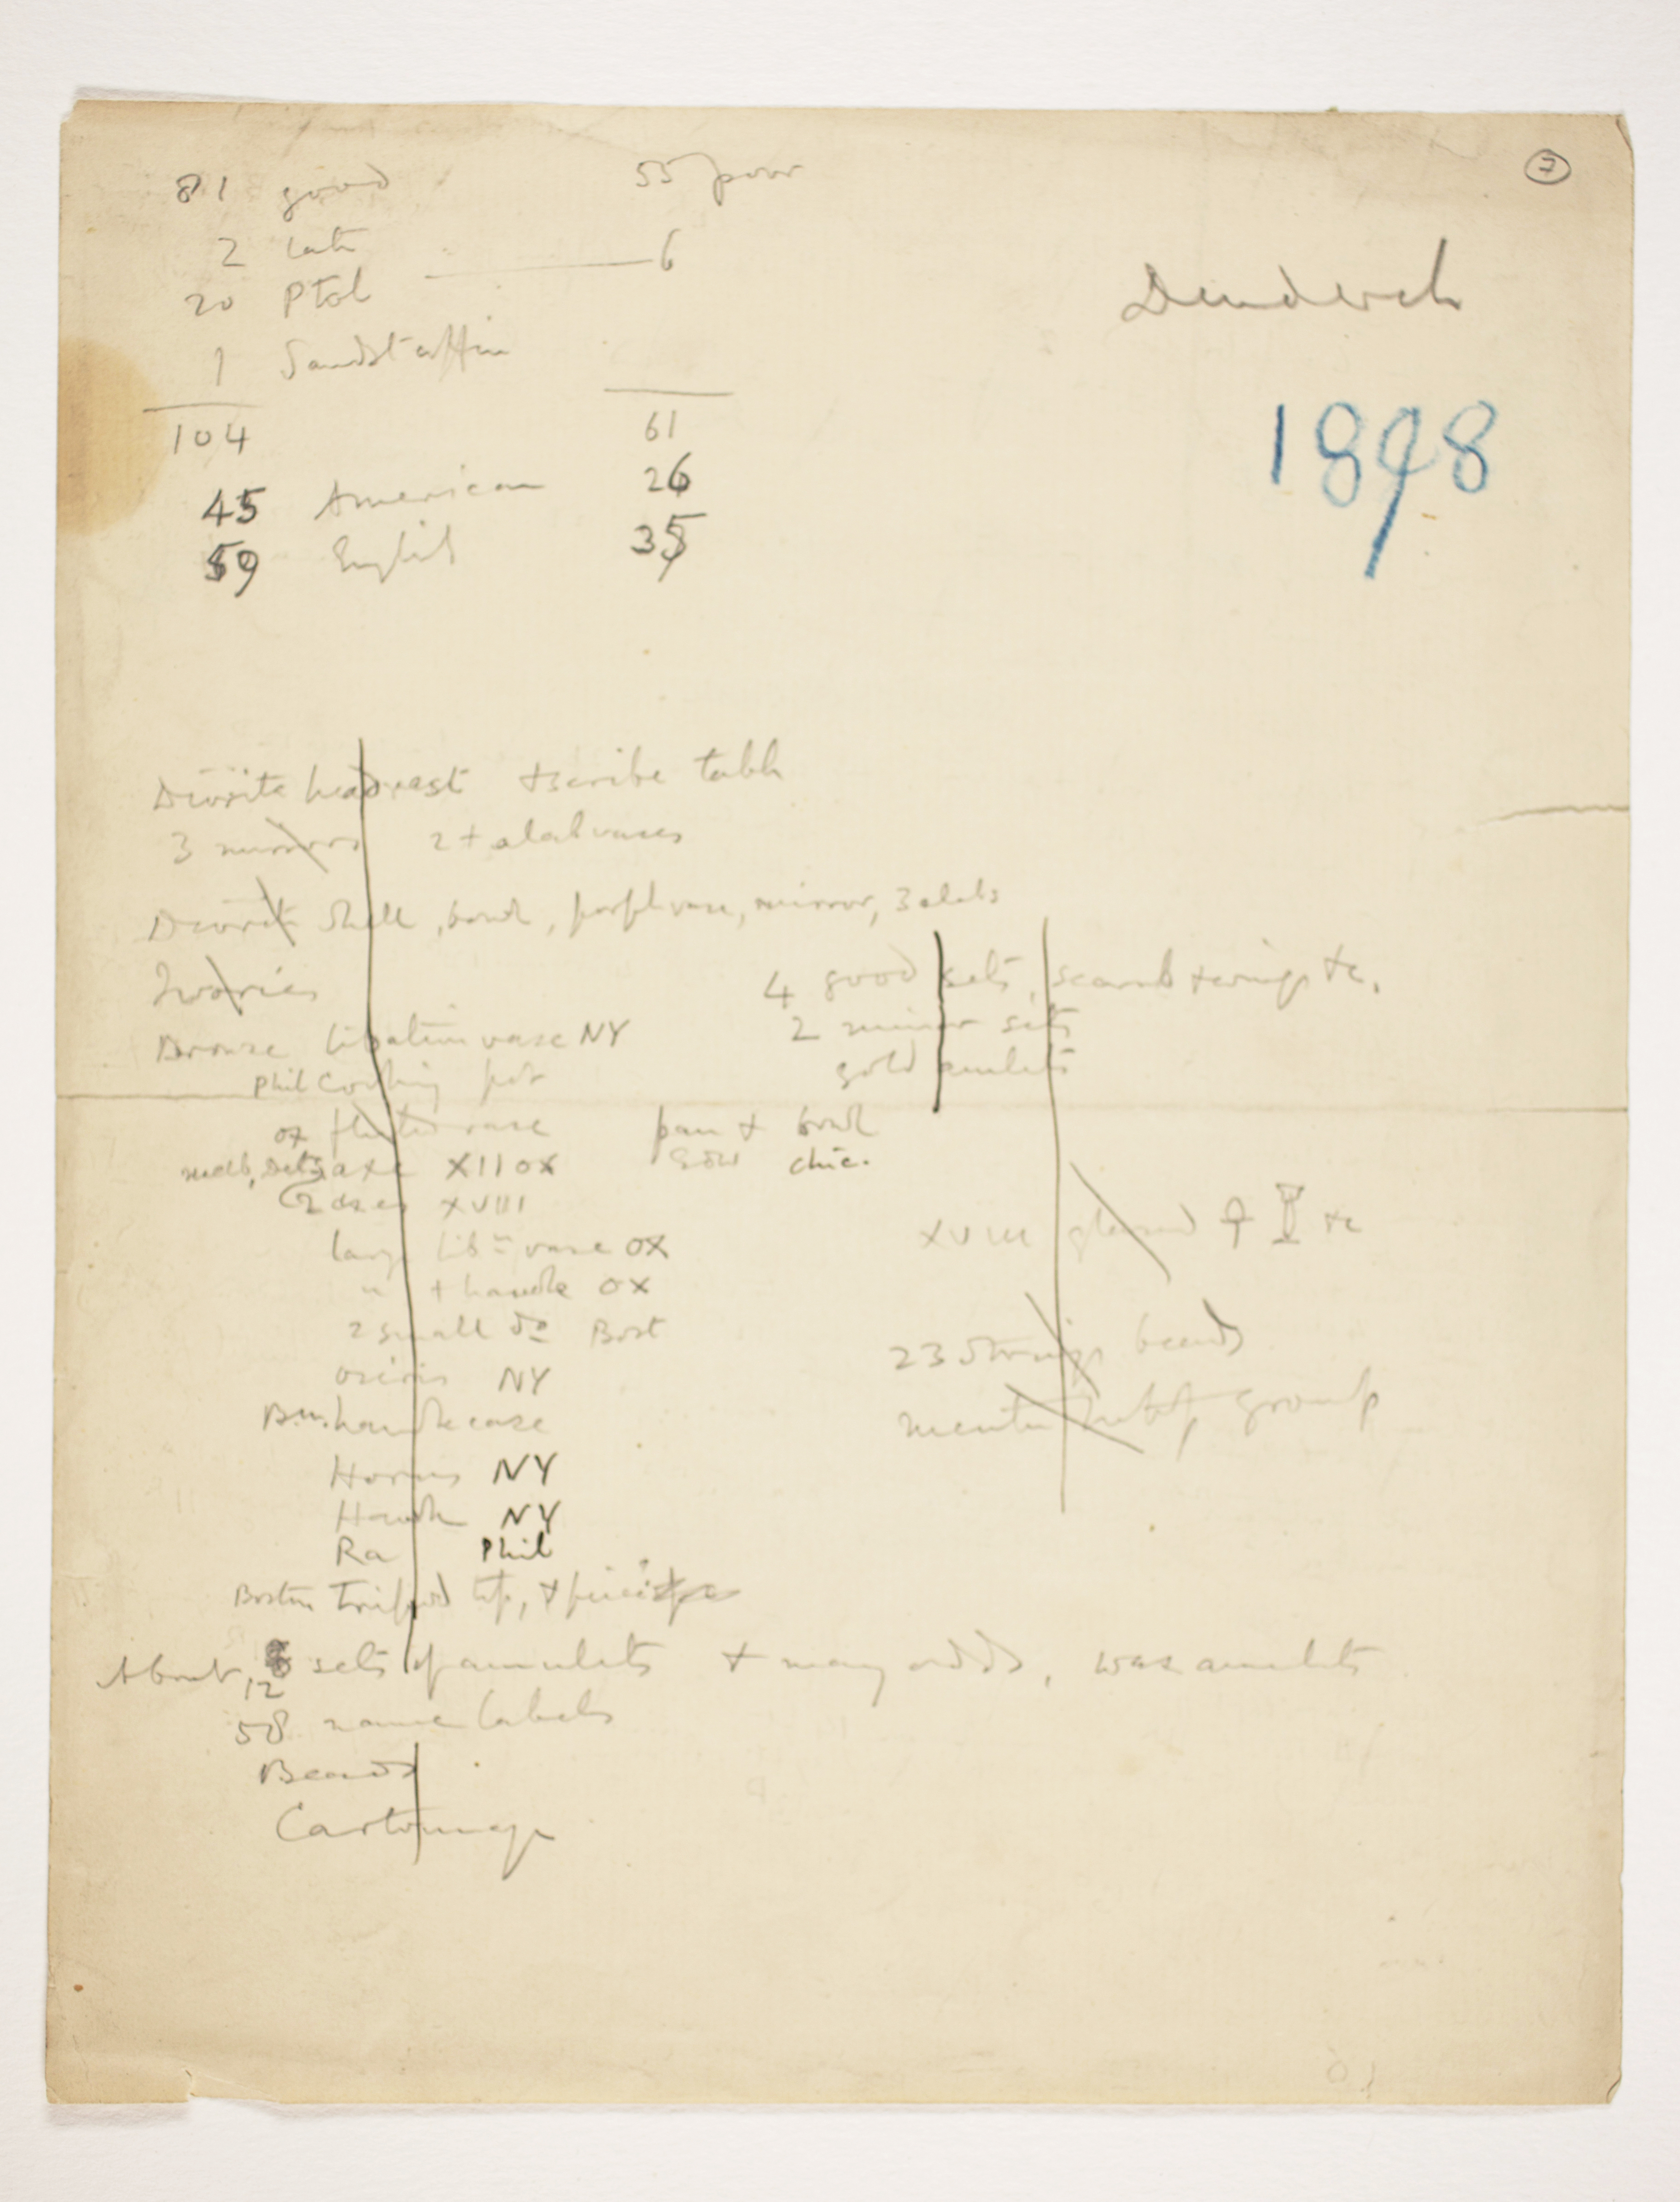 7
81 good 55 poor
2 late
20 Ptol 6
1 Sandst coffin
104 61
45 American 26
59 English 35
Denderah
1898
Diorite headrest + scribe table
3 mirrors 2 + alab vases
Diorite shell, bowl, porph vase, mirror, 3 alabs
Ivories
4 good sets, scarab + wings &c.
2 minor sets
gold amulets
Bronze libation vase NY
Phil Cooking pot
ox fluted vase pan + bowl
axe XII OX Edw chic.
2 axes XVIII
large libn vase OX
" + handle OX
2 small do Bost
osiris NY
B.M. handle case
Horus NY
Hawk NY
Ra Phil
Boston Tripod top, +
XVIII glazed ☥ &c
23 strings beads
group
About 12 sets of amulets + many odds, wax amulets
58 name labels
Beads
Cartonnage